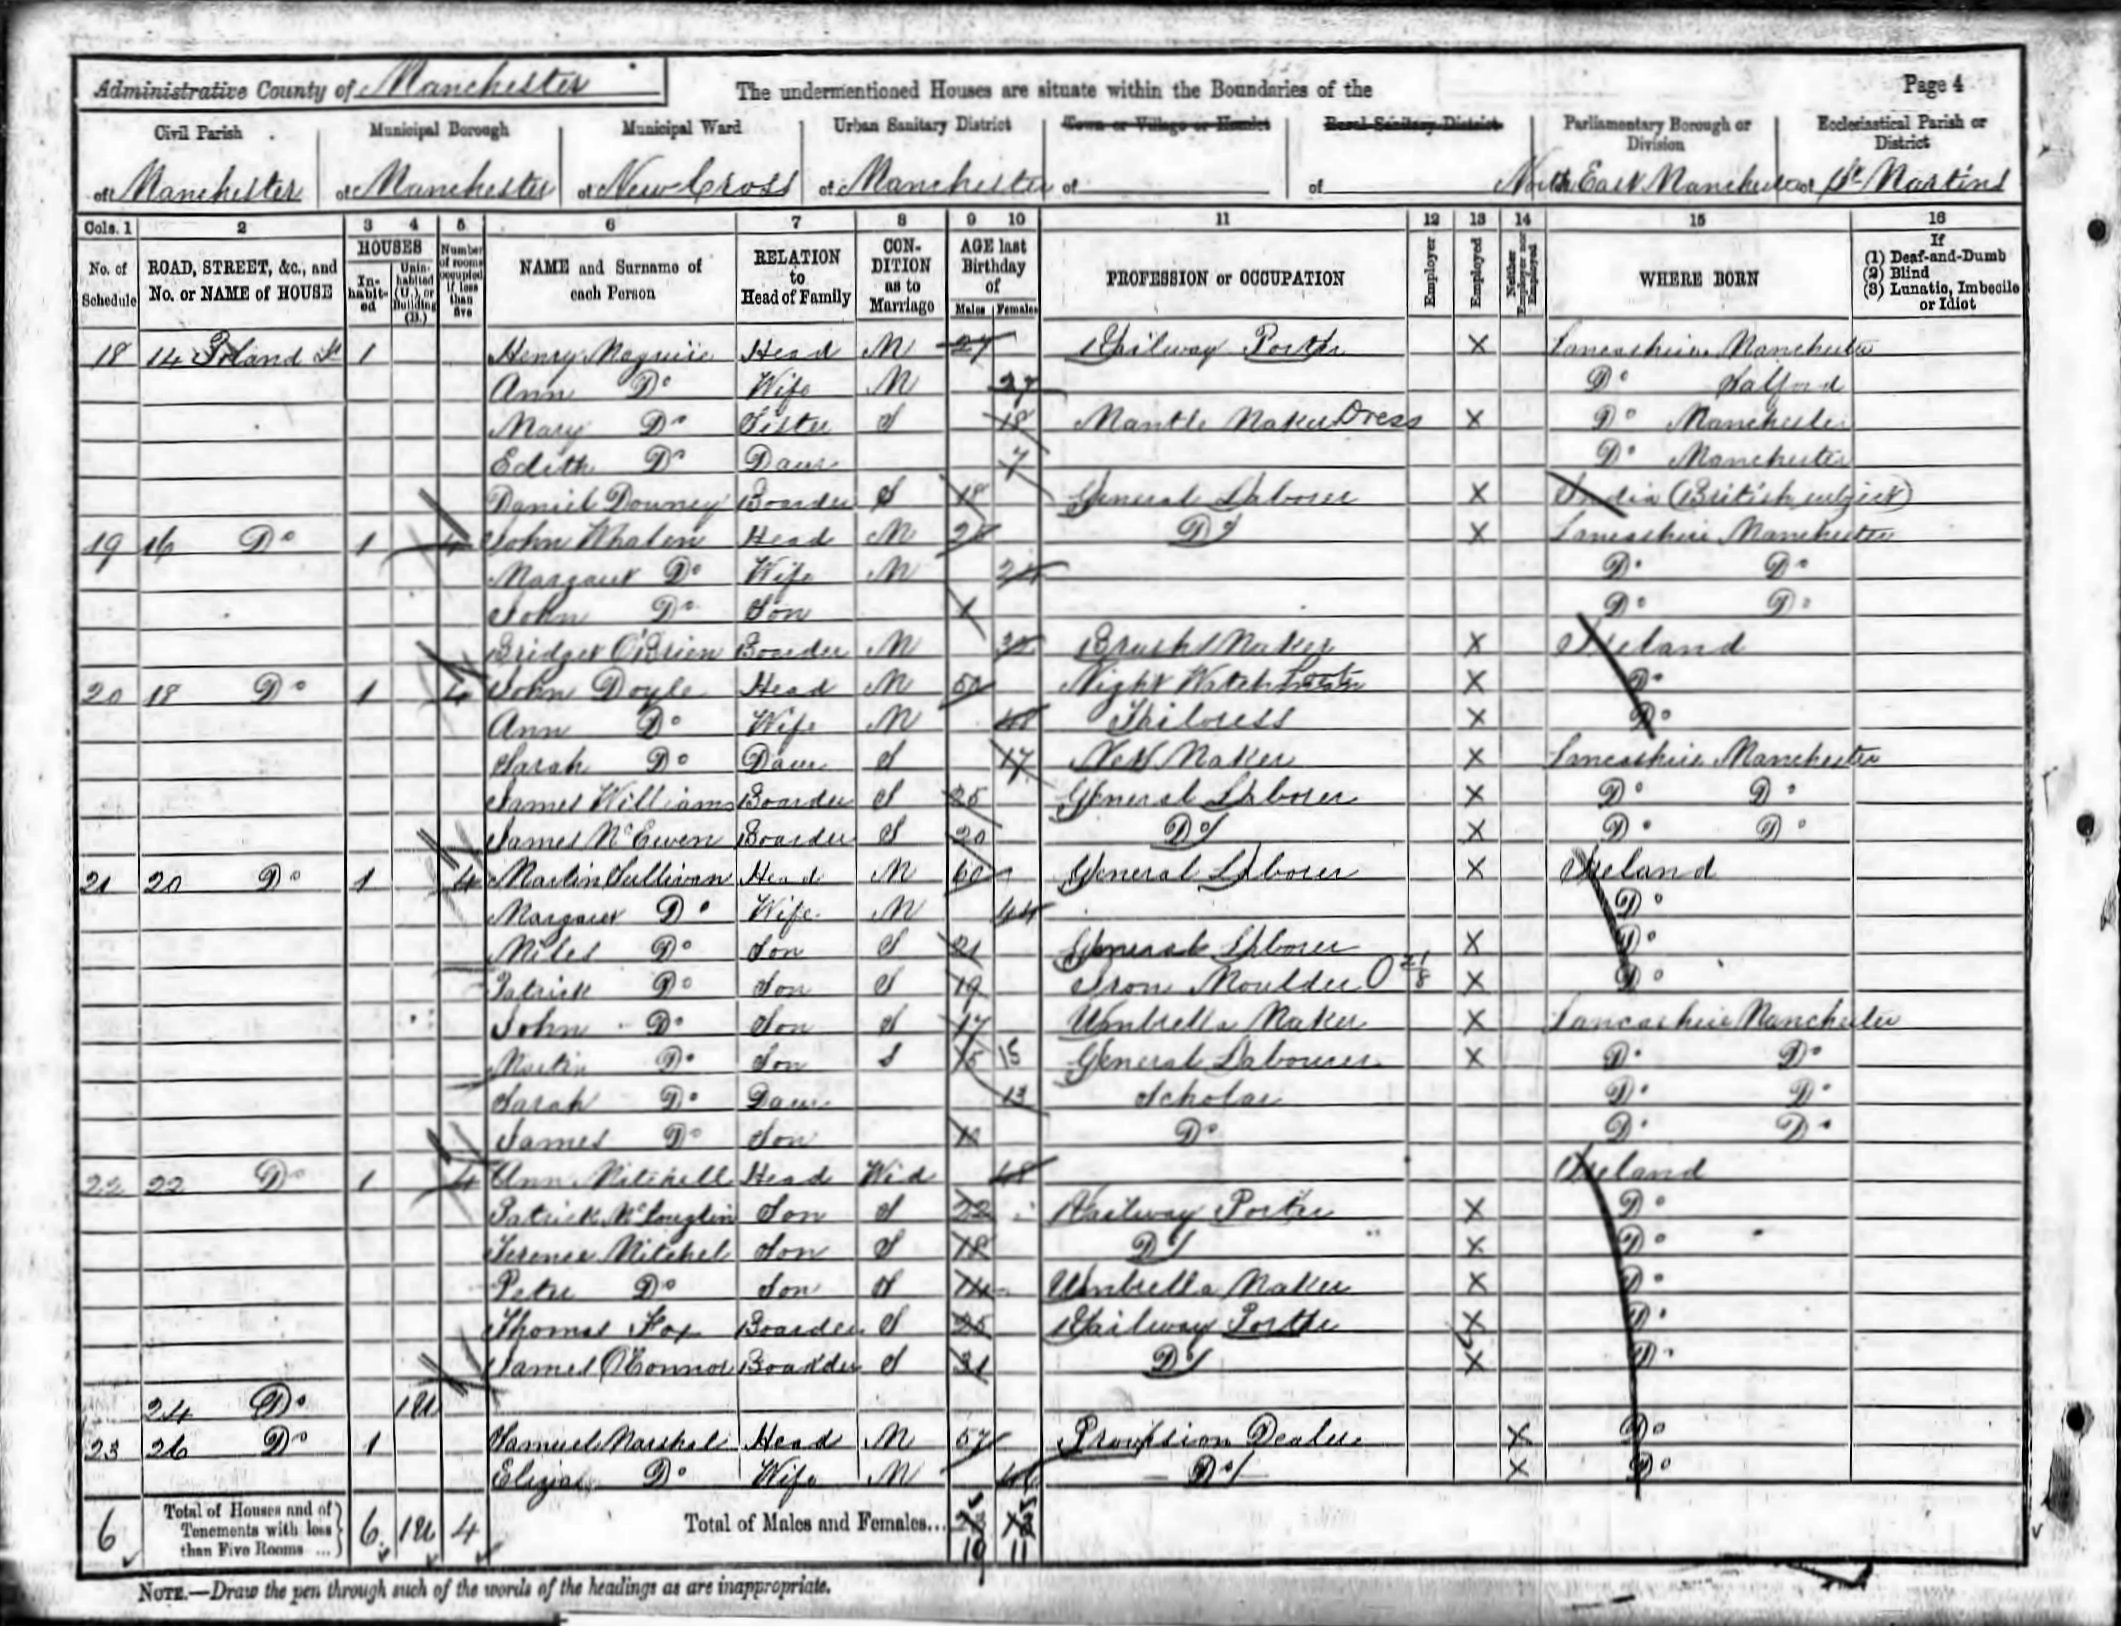 Administrative County of Manchester
The undermentioned Houses are situate within the Boundaries of the
Page 4
Civil Parish Municipal Borough Municipal Ward Urban Sanitary District Town or Village or Hamlet Rural Sanitary District Parliamentary Borough or Division Ecclesiastical Parish or District
of Manchester of Manchester of New Cross of Manchester of of North East Manchester of St Martins
Cols. 1 2 3 4 5 6 7 8 9 10 11 12 13 14 15 16
No. of Schedule ROAD, STREET, &c., and No. or NAME of HOUSE HOUSES In-habit-ed Unin-habited (U.), or Building (B.) Number of rooms occupied if less than five NAME and Surname of each Person RELATION to Head of Family CON-DITION as to Marriage AGE last Birthday of Males Females PROFESSION or OCCUPATION Employer Employed Neither Employer nor Employed WHERE BORN If (1) Deaf-and-Dumb (2) Blind (3) Lunatic, Imbecile or Idiot
18 14 Poland St 1 Henry Maguire Head M 27 Railway Porter X Lancashire Manchester
Ann Do Wife M 27 Do Salford
Mary Do Sister S 18 Mantle Maker Dress X Do Manchester
Edith Do Daur 7 Do Manchester
Daniel Downey Boarder S 18 General Laborer X India (British subject)
19 16 Do 1 4 John Whalen Head M Do X Lancashire Manchester
Margaret Do Wife M 24 Do Do
John Do Son 1 Do Do
Bridget O'Brien Boarder M Brush Maker X Ireland
20 18 Do 1 4 John Doyle Head M 50 Night Watchman X Do
Ann Do Wife M 48 Tailoress X Do
Sarah Do Daur S 17 Net Maker X Lancashire Manchester
James Williams Boarder S 25 General Laborer X Do Do
James McEwen Boarder S 20 Do X Do Do
21 20 Do 1 4 Martin Sullivan Head M 60 General Laborer X Ireland
Margaret Do Wife M 44 Do
Miles Do Son S 21 General Laborer X Do
Patrick Do Son S 19 Iron Moulder X Do
John Do Son S 17 Umbrella Maker X Lancashire Manchester
Martin Do Son S 15 General Labourer X Do Do
Sarah Do Daur 13 Scholar Do Do
James Do Son Do Do Do
22 22 Do 1 4 Ann Mitchell Head Wid 48 Ireland
Patrick McLouglin Son S 22 Railway Porter X Do
Terence Mitchel Son S 18 Do X Do
Peter Do Son S 14 Umbrella Maker X Do
Thomas Fox Boarder S 25 Railway Porter X Do
James O'Connor Boarder S 31 Do X Do
24 Do 1U
23 26 Do 1 Samuel Marshal Head M 57 Provision Dealer X Do
Eliza Do Wife M Do X Do
6 Total of Houses and of Tenements with less than Five Rooms ... 6 1U 4 Total of Males and Females... 19 11
NOTE.—Draw the pen through such of the words of the headings as are inappropriate.